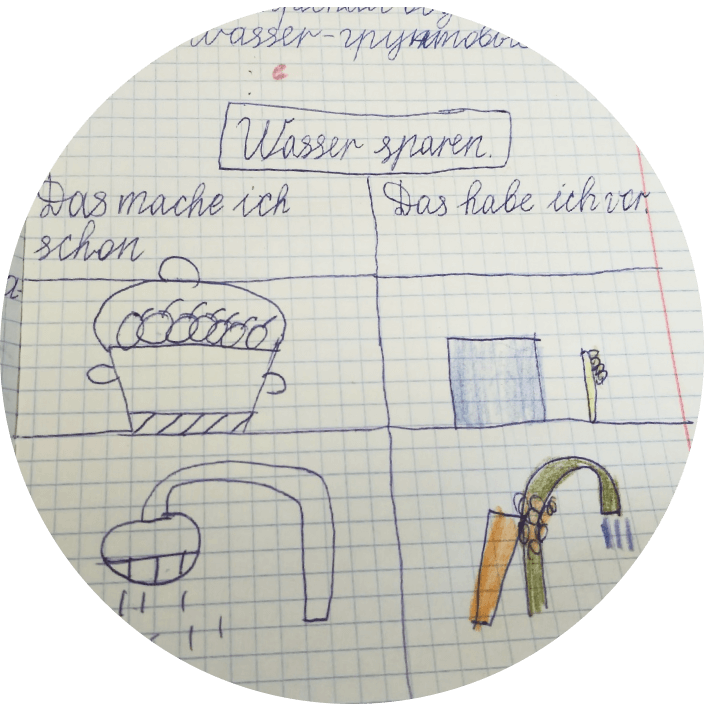 wasser-грунтовые
Wasser sparen.
Das mache ich
schon
Das habe ich vor.